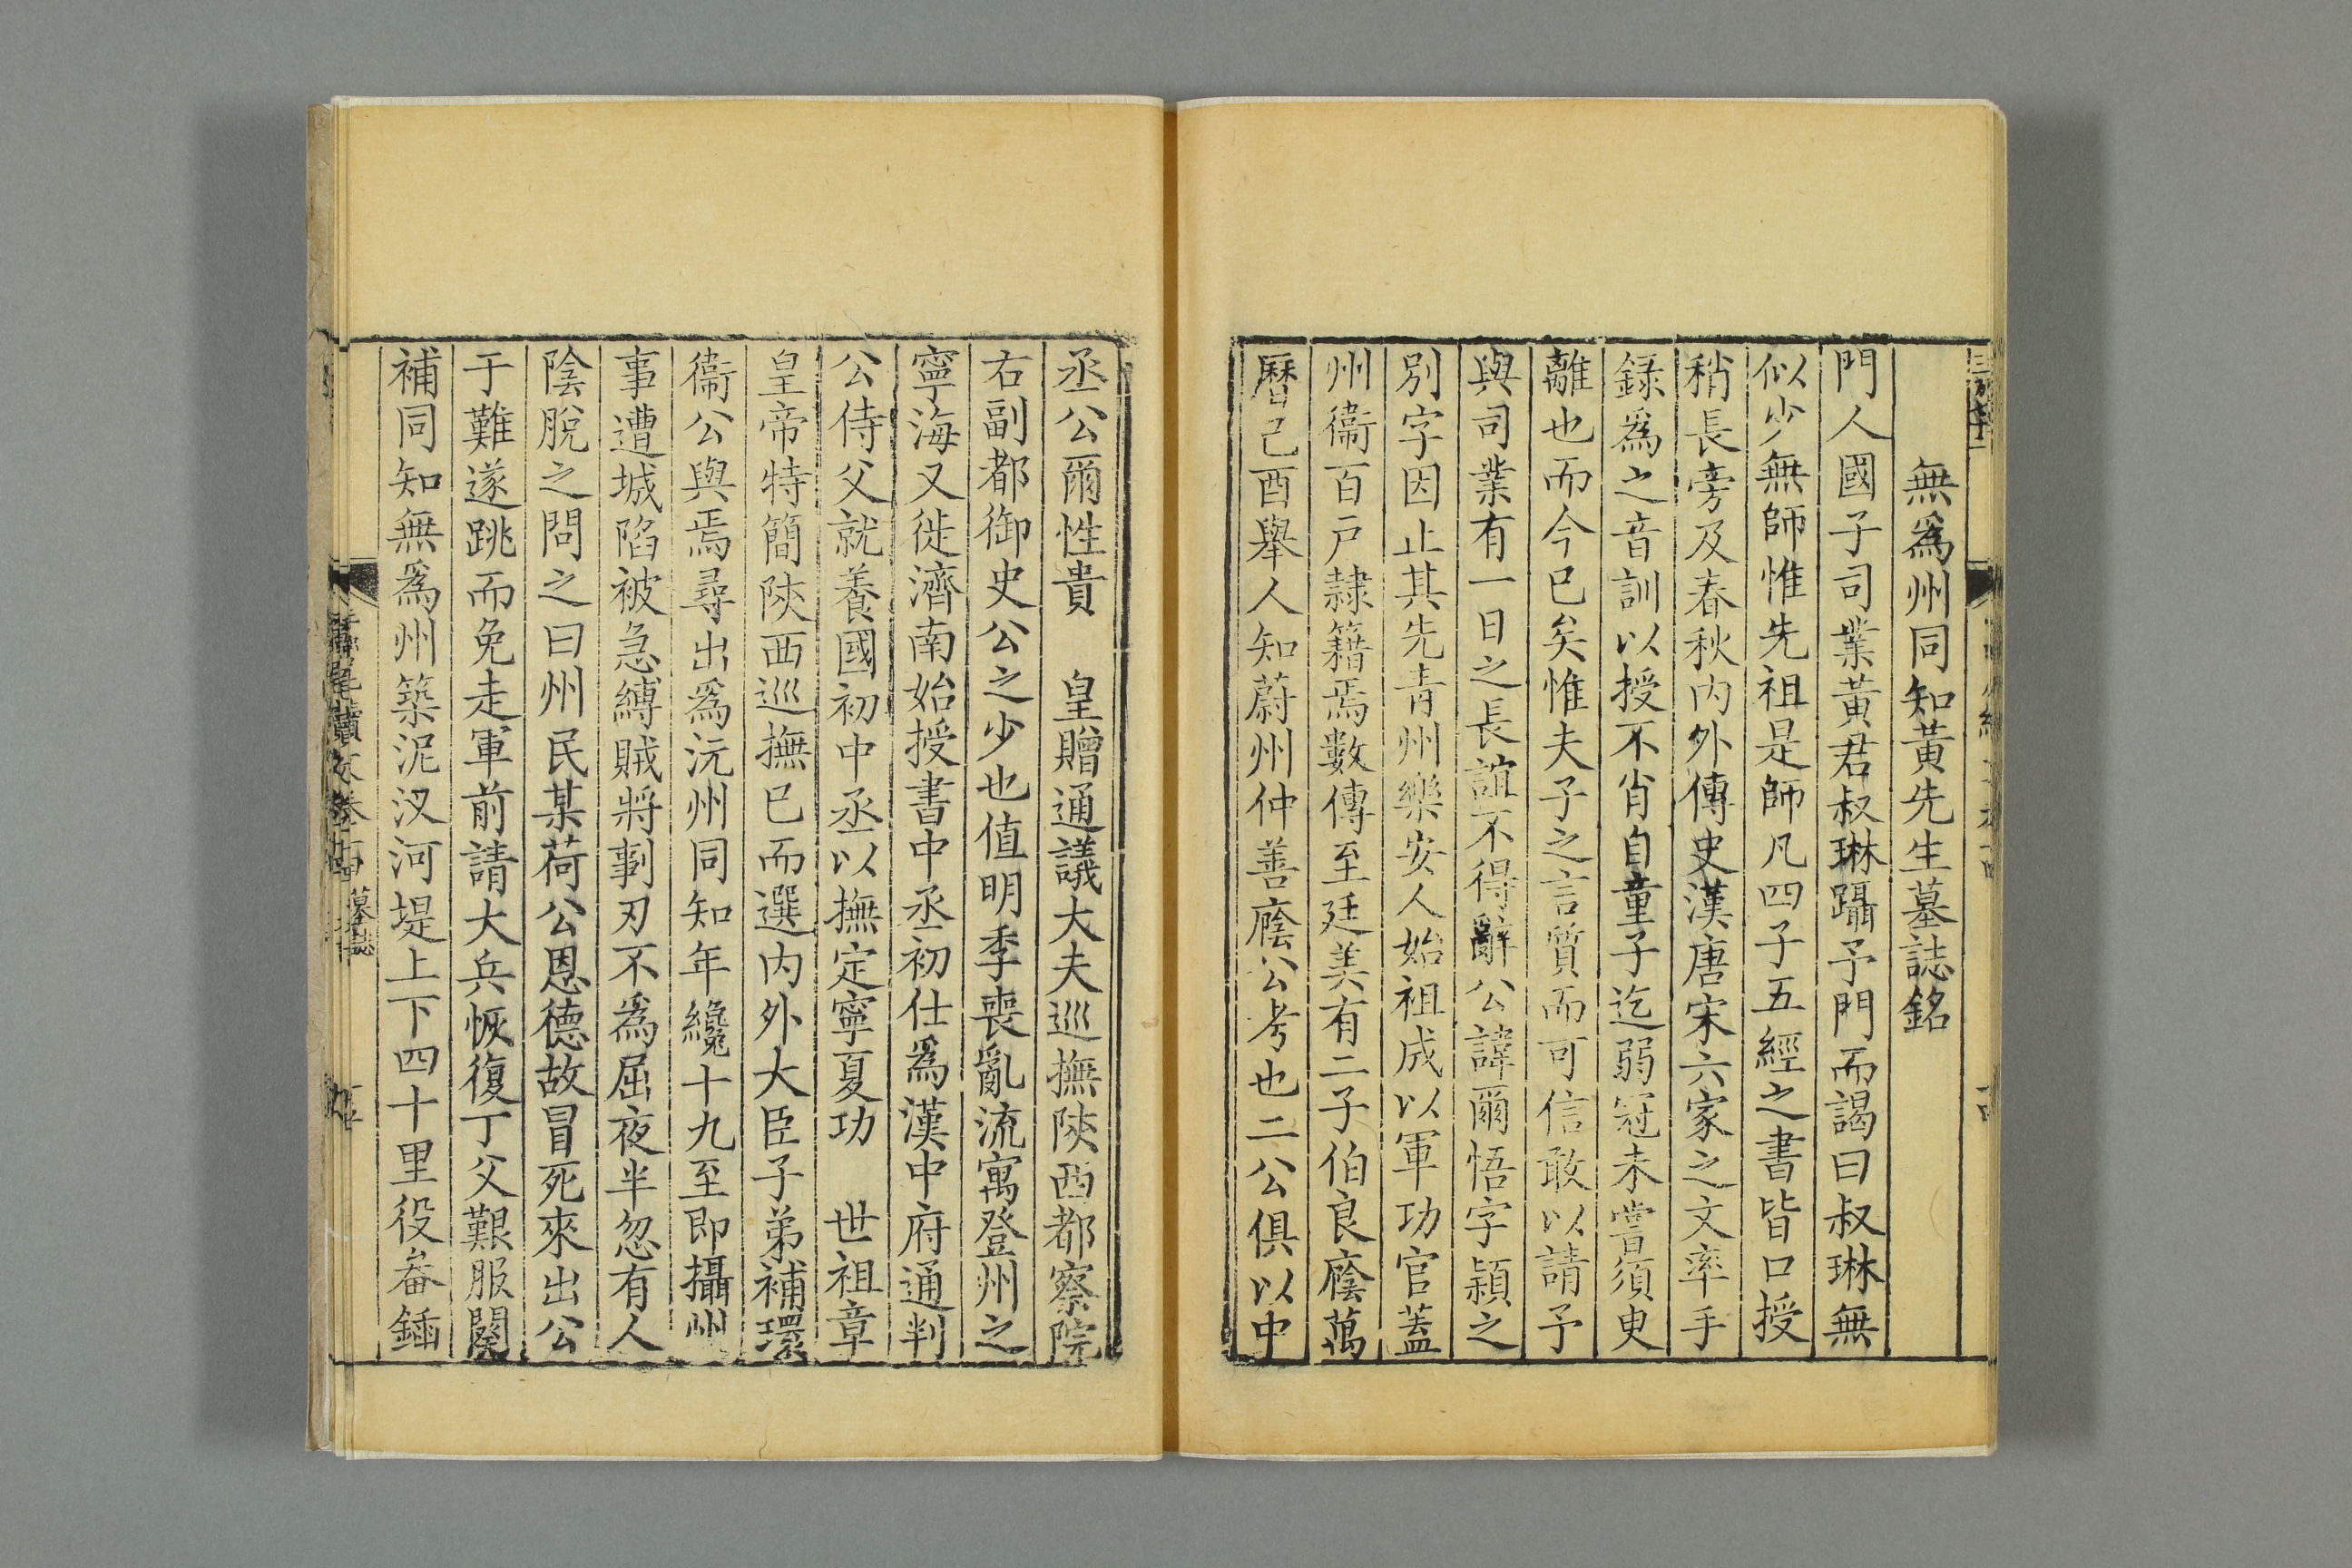 無爲州同知黃先生墓誌銘
門人國子司業黃君叔琳躡予門而謁曰叔琳無
似少無師惟先祖是師凡四子五經之書皆口授
稍長旁及春秋內外傳史漢唐宋六家之文率手
錄爲之音訓以授不肖自童子迄弱冠未嘗須臾
離也而今已矣惟夫子之言質而可信敢以請予
與司業有一日之長誼不得辭公諱爾悟字頴之
別字因止其先青州樂安人始祖成以軍功官蓋
州衞百戶隷籍焉數傳至廷美有二子伯良廕萬
曆己酉舉人知蔚州仲善廕公考也二公俱以中
丞公爾性貴　皇贈通議大夫巡撫陝西都察院
右副都御史公之少也值明季喪亂流寓登州之
寧海又徙濟南始授書中丞初仕爲漢中府通判
公侍父就養國初中丞以撫定寧夏功　世祖章
皇帝特簡陝西巡撫已而選內外大臣子弟補環
衞公與焉尋出爲沅州同知年纔十九至即攝州
事遭城陷被急縛賊將剚刃不爲屈夜半忽有人
陰脫之問之曰州民某荷公恩德故冒死來出公
于難遂跳而免走軍前請大兵恢復丁父艱服闋
補同知無爲州築泥汊河堤上下四十里役畚鍤
墓誌